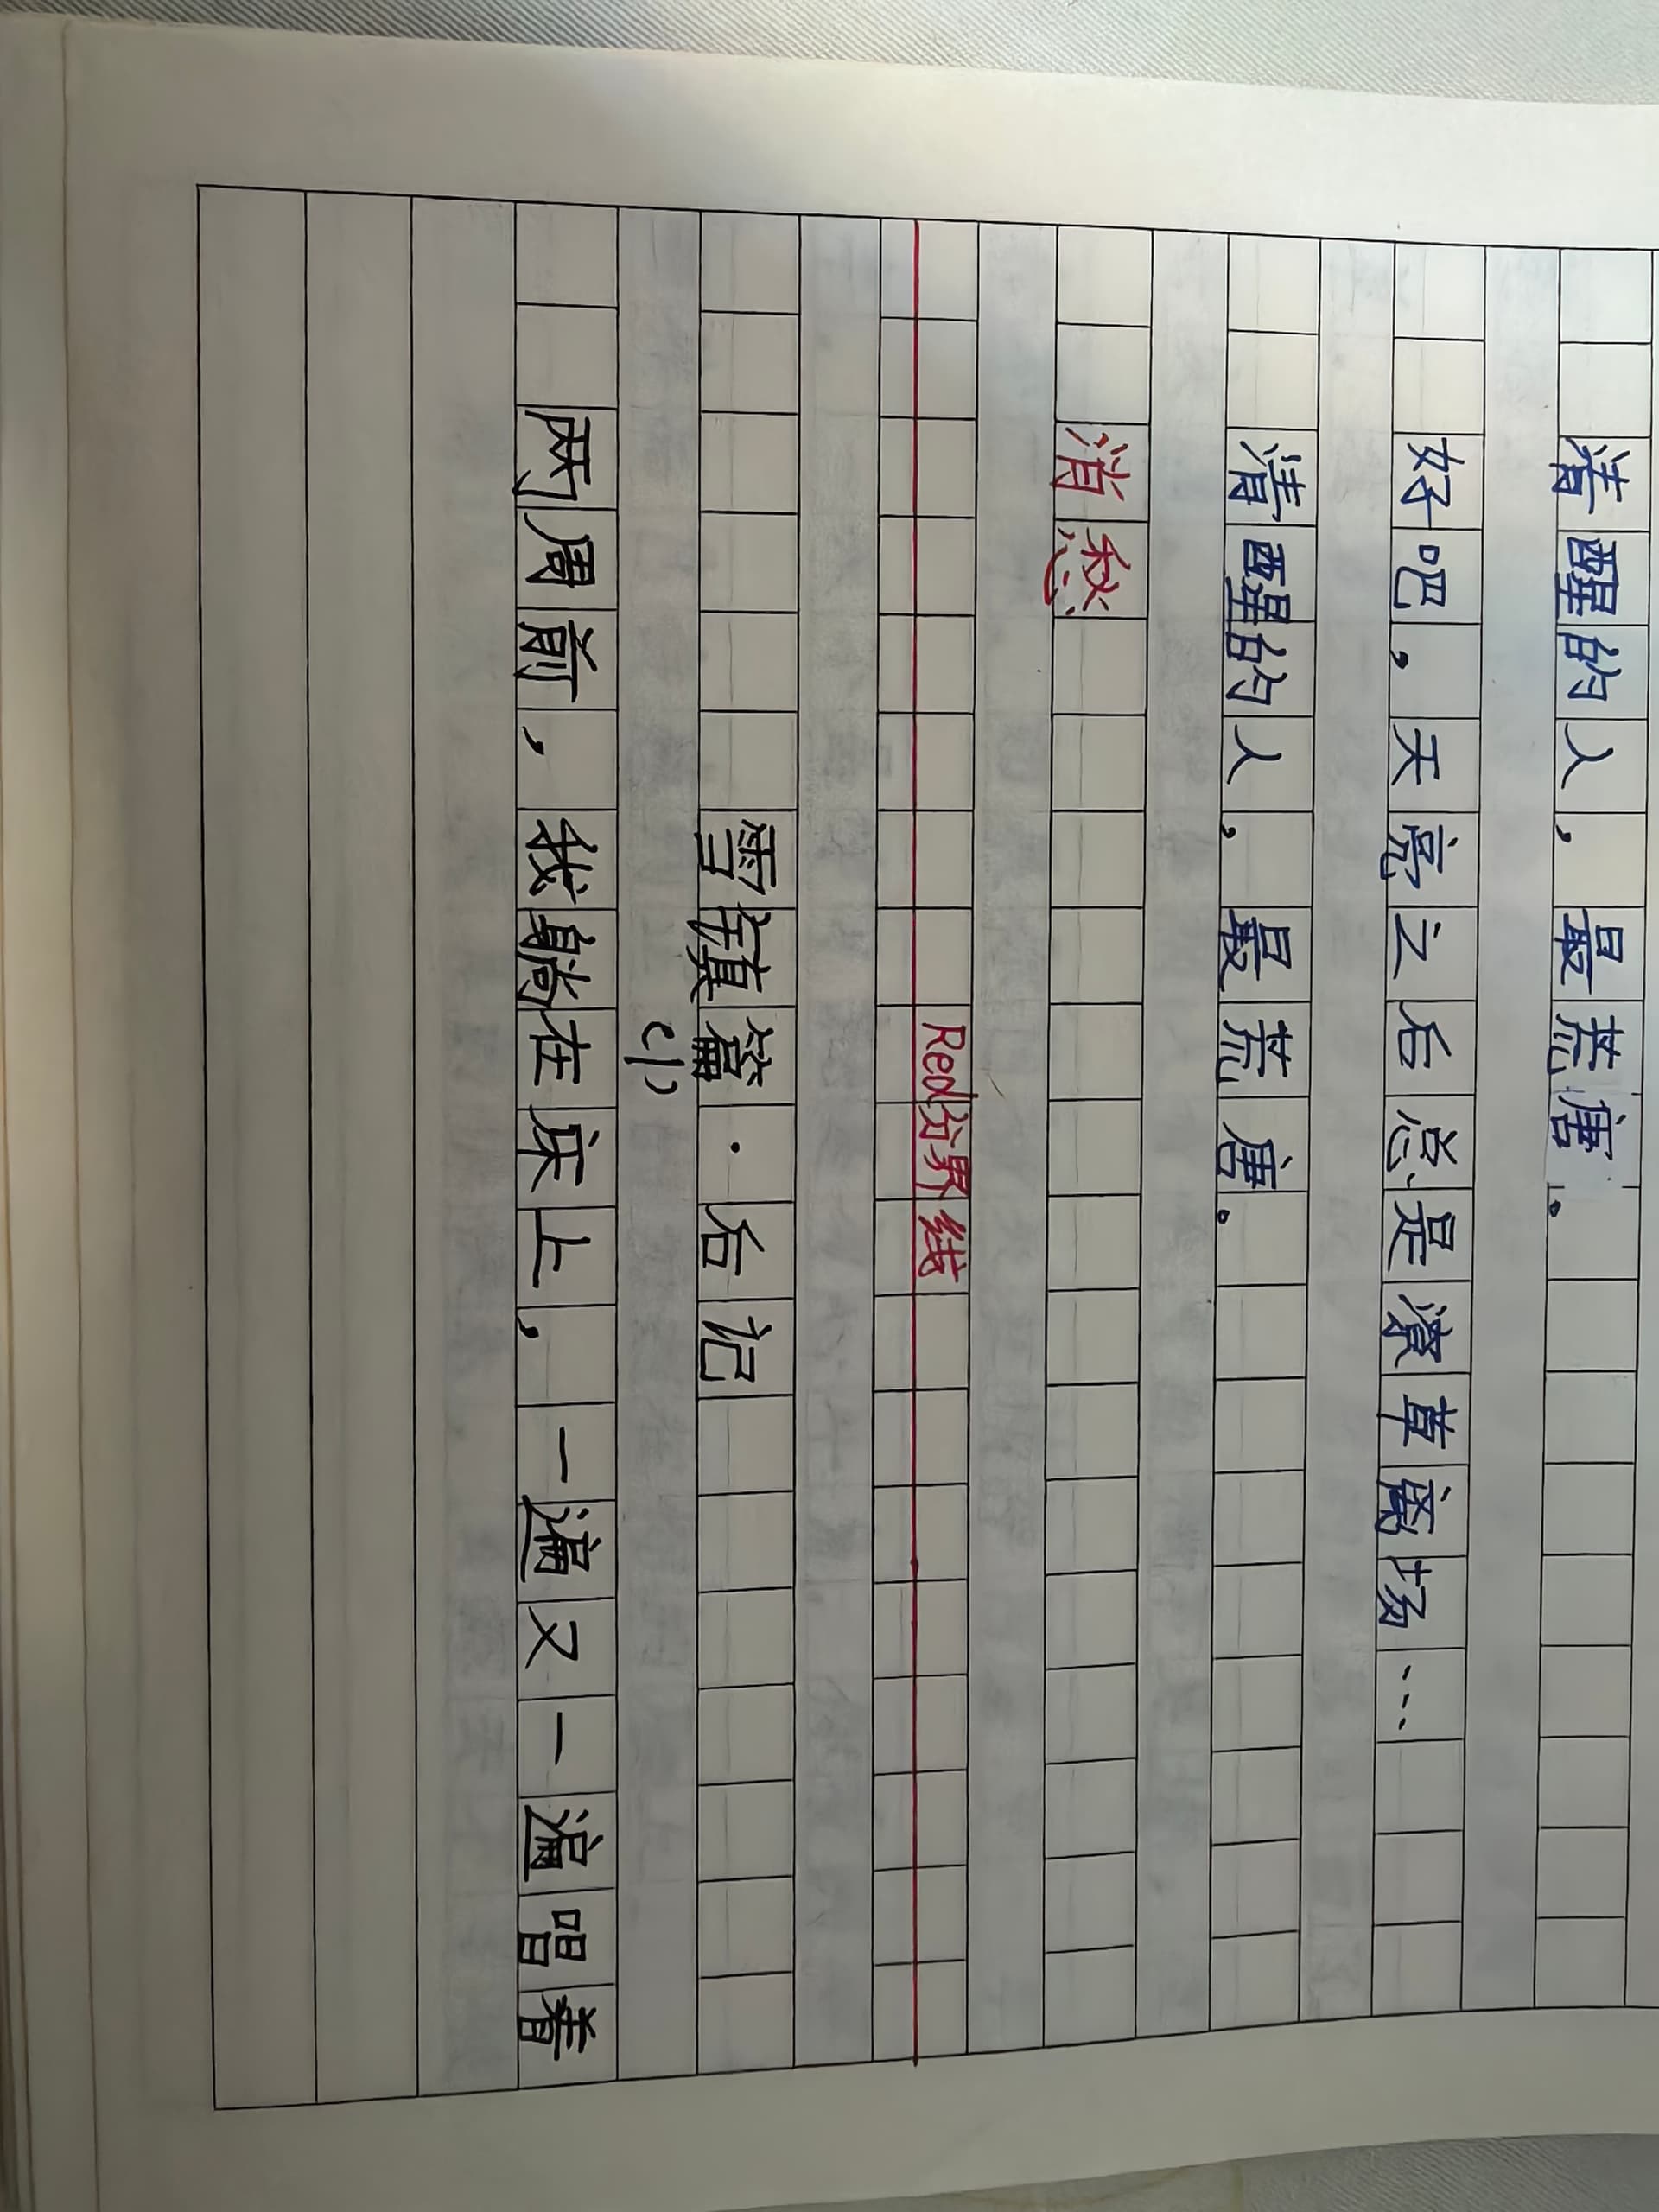 清醒的人，最荒唐。
好吧，天亮之后总是潦草离场…
清醒的人，最荒唐。
消愁
Red分界线
雪镇篇·后记
(1)
两周前，我躺在床上，一遍又一遍唱着